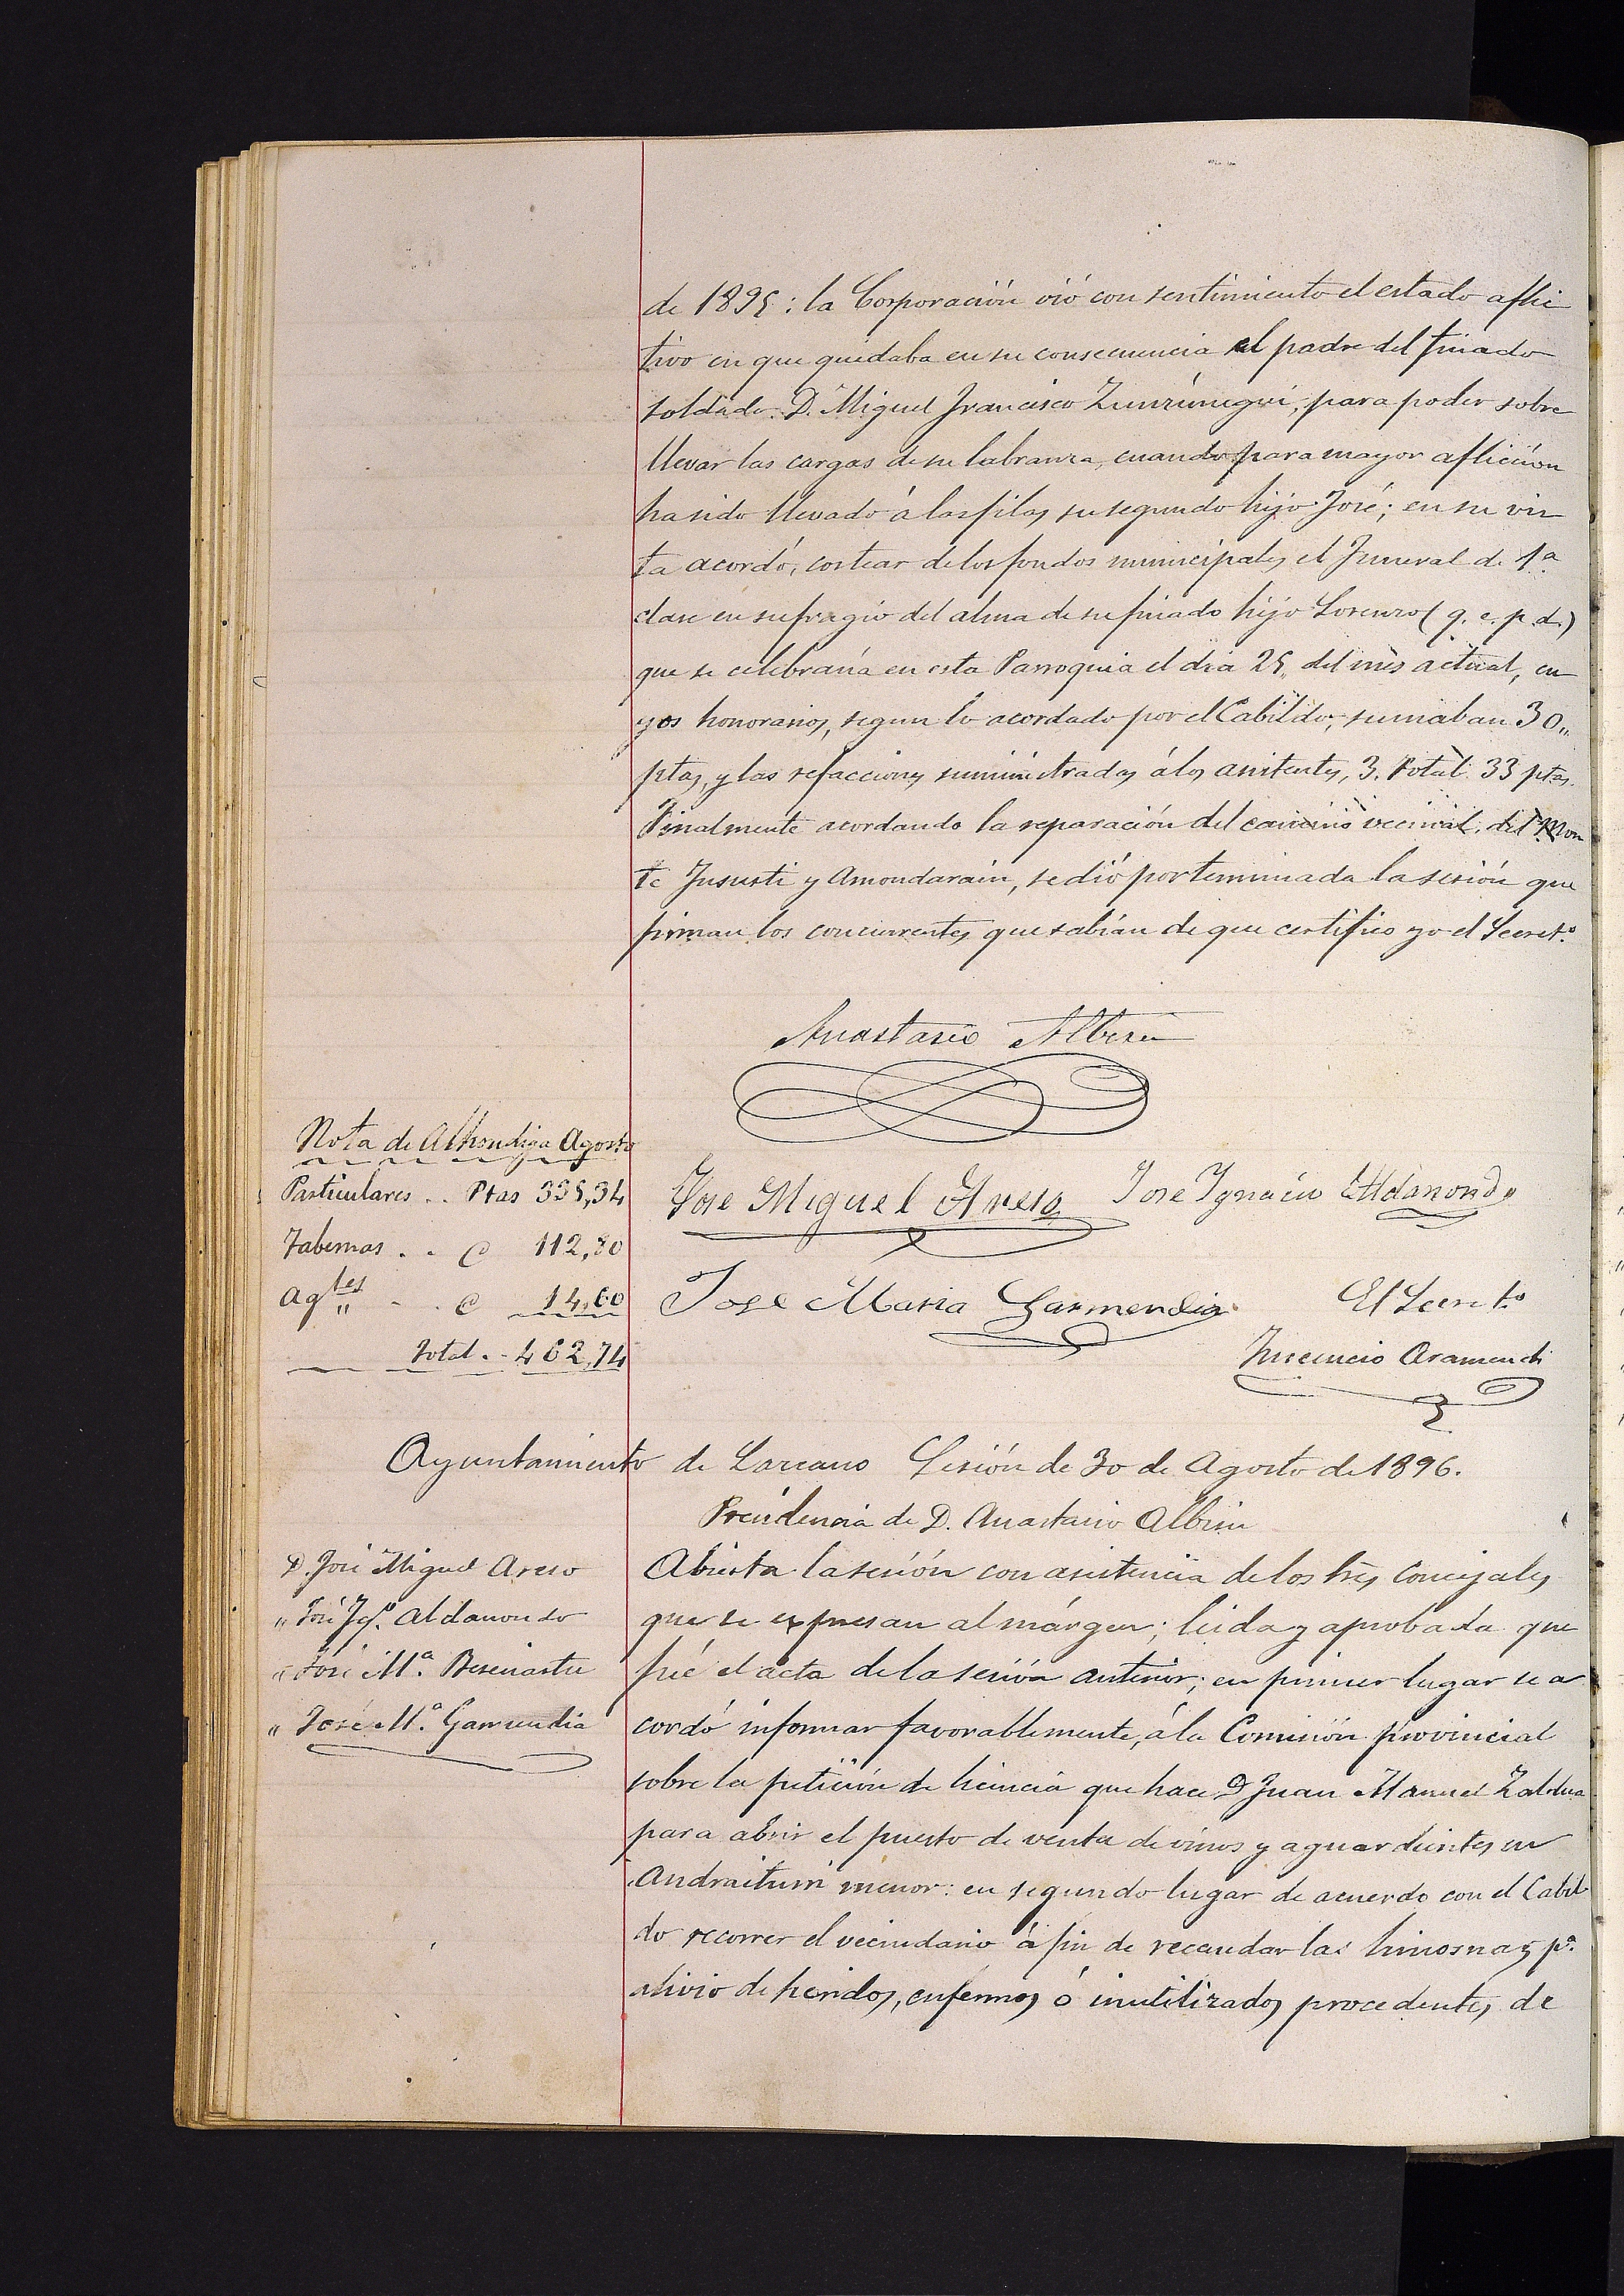 de 1895: la Corporación vió con sentimiento el estado aflic
tivo en que quedaba en su consecuencia el padre del finado
soldado D. Miguel Francisco Zunzúnegui, para poder sobre
llevar las cargas de su labranza, cuando para mayor aflicción
ha sido llevado á las filas su segundo hijo José; en su vis
ta acordó, costear de los fondos municipales el Funeral de 1ª
clase en sufragio del alma de su finado hijo Lorenzo (q. e. p. d.)
que se celebraría en esta Parroquia el dia 25,, del mes actual, cu
yos honorarios, segun lo acordado por el Cabildo, sumaban 30,,
ptas, y las refacciones suministradas á los asistentes, 3. Total 33 ptas.
Finalmente acordando la reparación del camino vecinal, del Mon
te Jususti y Amondarain, se dió por terminada la sesión que
firman los concurrentes que sabían de que certifico yo el Secretº.
Anastasio Albisu
Nota de Alhondiga Agosto
Particulares .. Ptas 335,34
Tabernas . . @ 112,80
Agtes ,, . . @ 14,60
Total .. 462,74
Jose Miguel Areso Jose Ygnacio Aldanondo
Jose Maria Garmendia El Secretº
Inocencio Aramendi
Ayuntamiento de Lazcano Sesión de 30 de Agosto de 1896.
Presidencia de D. Anastasio Albisu
D. José Miguel Areso
" José Igº. Aldanondo
" José Mª. Beseiastu
" José Mª. Garmendia
Abierta la sesión con asistencia de los tres Concejales
que se expresan al márgen; leida y aprobada que
fué el acta de la sesión anterior; en primer lugar se a
cordó informar favorablemente, á la Comisión provincial
sobre la petición de licencia que hace D Juan Manuel Zaldua
para abrir el puesto de venta de vinos y aguardientes en
menor: en segundo lugar de acuerdo con el Cabil
do recorrer el vecindario á fin de recaudar las limosnas pª.
alivio de heridos, enfermos ó inutilizados procedentes de